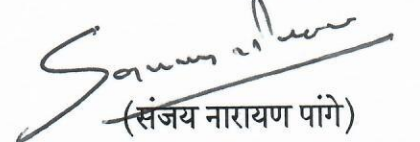 (संजय नारायण पांगे)